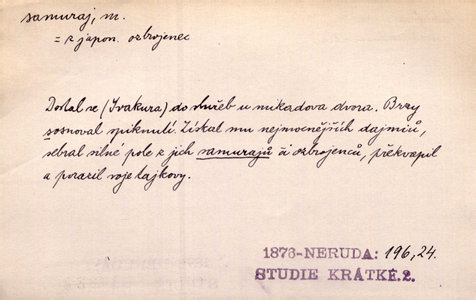 samuraj, m.
= z japon. ozbrojenec
Dostal se (Ivakura) do služeb u mikadova dvora. Brzy
sosnoval spiknutí. Získal mu nejmocnějších dajmiů,
sebral silné pole z jich samurajů či ozbrojenců, překvapil
a porazil voje tajkovy.
1876-NERUDA: 196,24.
STUDIE KRÁTKÉ.2.